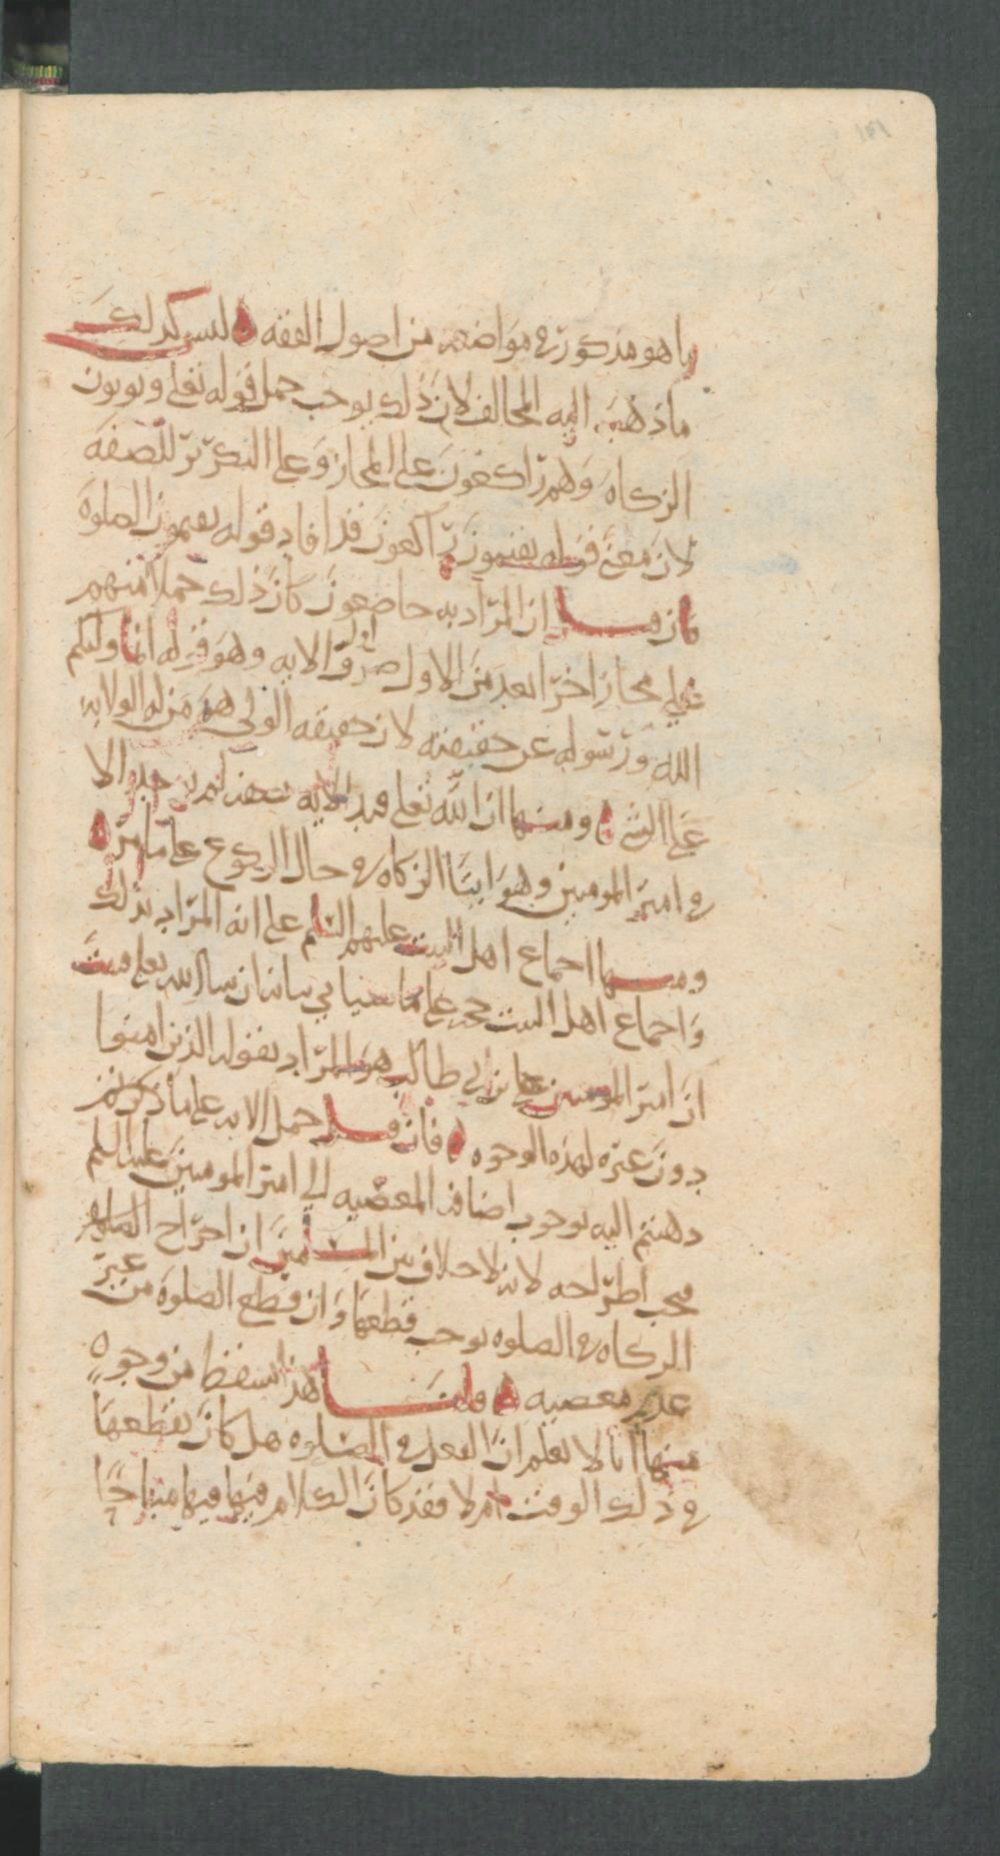 ما هو مذكور في مواضعه من اصول الفقه ليس كذلك
ما ذهب اليه المخالف لان ذلك يوجب حمل قوله تعالى ويوتون
الزكاه وهم راكعون على المجاز وعلى التكرير للصفه
لان معنى قوله يقيمون راكعون قد افاد قوله يقيمون الصلوة
فان قيل ان المراد به خاضعون كان ذلك حملا منهم
على مجاز اخر ابعد من الاول صرف الايه وهو قوله انما وليكم
الله ورسوله عن حقيقته لان حقيقه الولي هو من له الولاية
على الشي ومنها ان الله تعالى قيد الايه الا
في امير المومنين وهو ايتا الزكاه في حال الركوع على ما مر
ومنها اجماع اهل البيت عليهم السلم على انه المراد بذلك
واجماع اهل البيت حجه على ما سياتي بيانه ان شا الله تعالى فثبت
ان امير المومنين علي بن ابي طالب هو المراد بقوله الذين امنوا
دون غيره لهذه الوجوه فان قيل حمل الايه على ما ذكرتم
دهبتم اليه يوجب اضافه المعصيه الى امير المومنين عليه السلم
فيجب اطراحه لانه لا خلاف بين المسلمين ان اخراج
الزكاه في الصلوه يوجب قطعها وان قطع الصلوة من غير
عذر معصيه قلنا هذا يسقط من وجوه
منها انا لا نعلم ان الفعل في الصلوه هل كان يقطعها
في ذلك الوقت ام لا فقد كان الكلام فيها مباحا